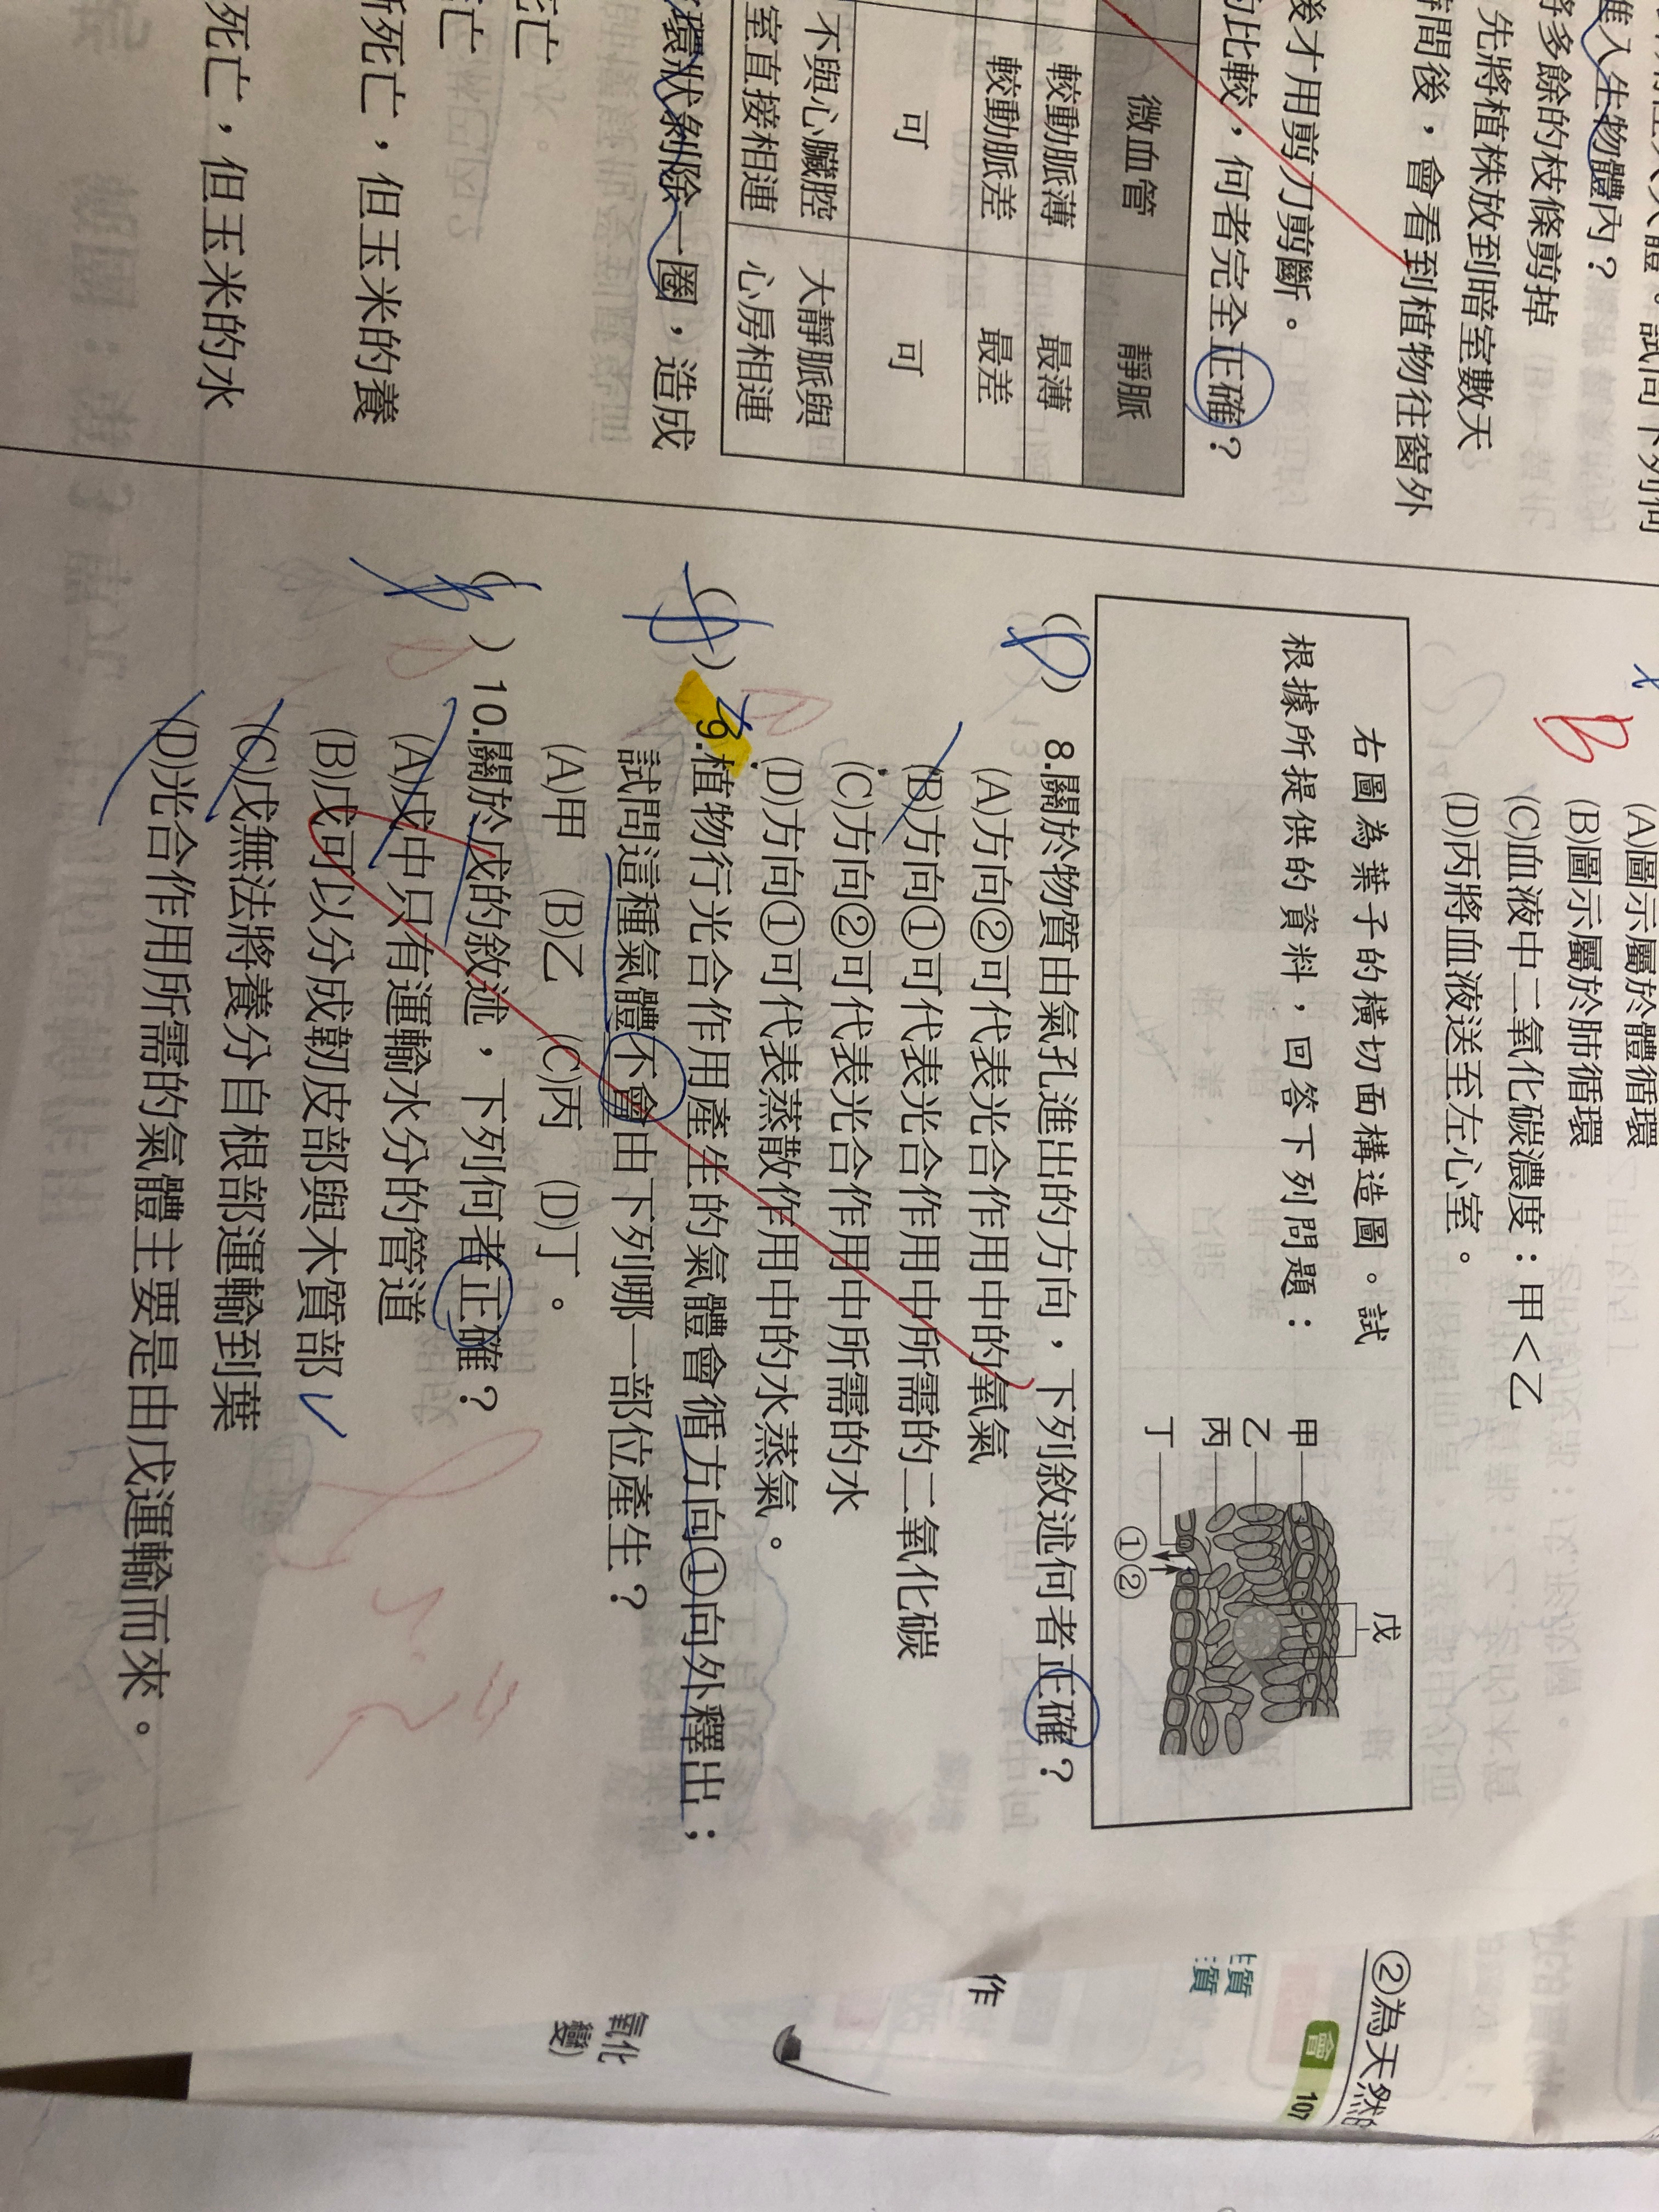 進入生物體內？
將多餘的枝條剪掉
先將植株放到暗室數天
時間後，會看到植物往窗外
後才用剪刀剪斷。
的比較，何者完全正確？
微血管 靜脈
較動脈薄 最薄
較動脈差 最差
可 可
不與心臟腔室直接相連 大靜脈與心房相連
環狀剝除一圈，造成
死亡
亡
所死亡，但玉米的養
死亡，但玉米的水
B
(A)圖示屬於體循環
(B)圖示屬於肺循環
(C)血液中二氧化碳濃度：甲＜乙
(D)丙將血液送至左心室。
右圖為葉子的橫切面構造圖。試
根據所提供的資料，回答下列問題：
戊
甲
乙
丙
丁
①②
( D ) 8.關於物質由氣孔進出的方向，下列敘述何者正確？
(A)方向②可代表光合作用中的氧氣
(B)方向①可代表光合作用中所需的二氧化碳
(C)方向②可代表光合作用中所需的水
(D)方向①可代表蒸散作用中的水蒸氣。
( ) 9.植物行光合作用產生的氣體會循方向①向外釋出；
試問這種氣體不會由下列哪一部位產生？
(A)甲 (B)乙 (C)丙 (D)丁。
( ) 10.關於戊的敘述，下列何者正確？
(A)戊中只有運輸水分的管道
(B)戊可以分成韌皮部與木質部
(C)戊無法將養分自根部運輸到葉
(D)光合作用所需的氣體主要是由戊運輸而來。
②為天然
會 107
質
質
作
氧化
變)